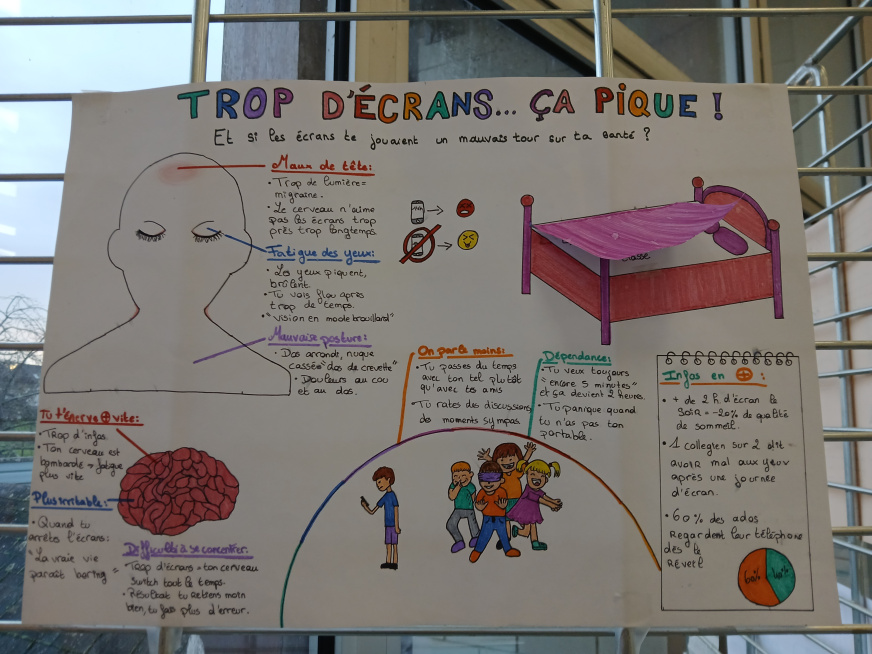 TROP D'ÉCRANS... ÇA PIQUE !
Et si les écrans te jouaient un mauvais tour sur ta santé ?
Maux de tête:
• Trop de lumière=
migraine.
• Le cerveau n'aime
pas les écrans trop
près trop longtemps.
Fatigue des yeux:
• Les yeux piquent,
brûlent.
• Tu vois flou après
trop de temps.
• "vision en mode brouillard"
Mauvaise posture:
• Dos arrondi, nuque
cassée "dos de crevette"
• Douleurs au cou
et au dos.
classe
On parle moins:
• Tu passes du temps
avec ton tel plutôt
qu'avec tes amis
• Tu rates des discussions
des moments sympas.
Dépendance:
• Tu veux toujours
"encore 5 minutes"
et ça devient 2 heures.
• Tu panique quand
tu n'as pas ton
portable.
Infos en +
• + de 2 h d'écran le
soir = -20% de qualité
de sommeil.
• 1 collégien sur 2 dit
avoir mal aux yeux
après une journée
d'écran.
• 60% des ados
Regardent leur téléphone
dès le
Réveil
60%
40%
Tu t'énerve + vite:
• Trop d'infos.
• Ton cerveau est
bombardé → fatigue
plus vite
Plus irritable:
• Quand tu
arrêtes l'écrans:
"La vraie vie
paraît boring"
Difficulté à se concentrer:
• Trop d'écrans = ton cerveau
switch tout le temps.
• Résultat tu retiens moin
bien, tu fais plus d'erreur.